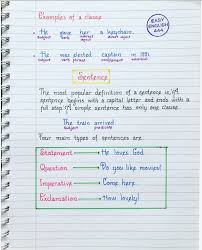 Examples of a clause
EASY ENGLISH 444
He gave her a keychain.
subject verb indirect object direct object
He was elected captain in 1981.
subject verb phrase complement adverbial
Sentence
The most popular definition of a sentence is, "A
sentence begins with a capital letter and ends with
a full stop". A simple sentence has only one clause.
The train arrived
subject predicate
Four main types of sentences are:
Statement → He loves God.
Question → Do you like movies?
Imperative → Come here.
Exclamation → How lovely!